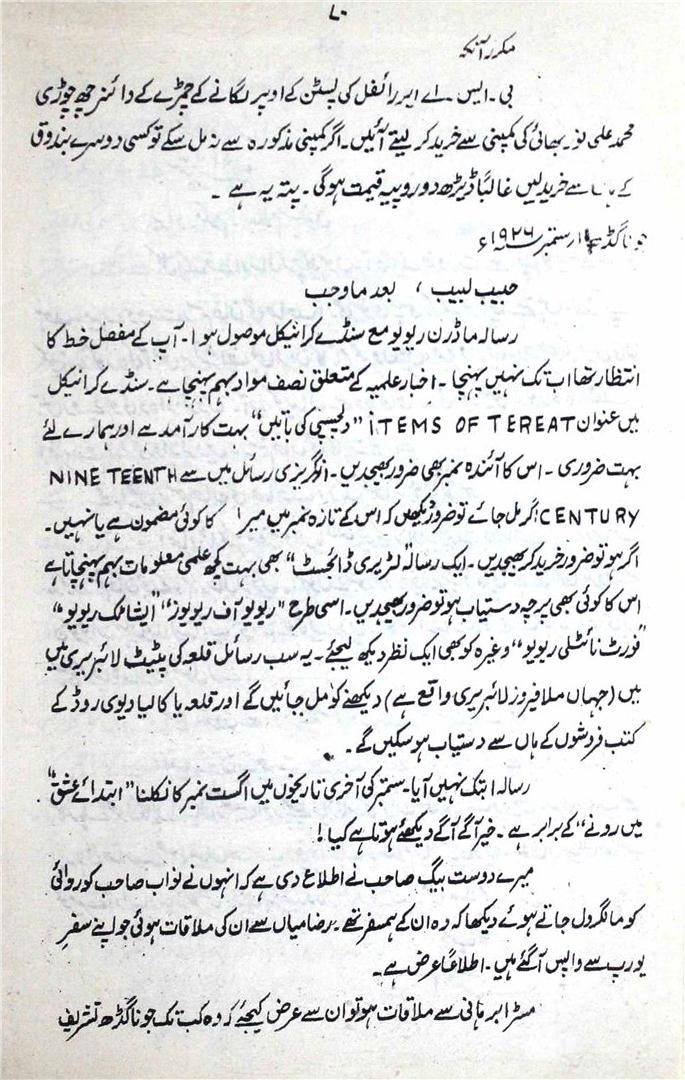 ۷۰
مکرر آنکہ
بی۔ایس۔اے ایر رائفل کی پسٹن کے اوپر لگانے کے چمڑے کے دائنر چھ چوڑی
محمد علی نور بھائی کی کمپنی سے خرید کر لیتے آئیں۔ اگر کمپنی مذکورہ سے نہ مل سکے تو کسی دوسرے بندوق
کے ہاں سے خرید لیں غالباً ڈیڑھ دو روپیہ قیمت ہوگی۔ پتہ یہ ہے۔
جوناگڈھ ار ستمبر ۱۹۲۶ء
حبیب لبیب، بعد ما وجب
رسالہ ماڈرن ریویو مع سنڈے کرانیکل موصول ہوا۔ آپ کے مفصل خط کا
انتظار تھا اب تک نہیں پہنچا۔ اخبار علمیہ کے متعلق نصف مواد بہم پہنچا ہے۔ سنڈے کرانیکل
میں عنوان ITEMS OF TEREAT "دلچسپی کی باتیں" بہت کار آمد ہے اور ہمارے لئے
بہت ضروری۔ اس کا آئندہ نمبر بھی ضرور بھیجدیں۔ انگریزی رسائل میں سے NINE TEENTH
CENTURY اگر مل جائے تو ضرور دیکھیں کہ اس کے تازہ نمبر میں میرا کا کوئی مضمون ہے یا نہیں۔
اگر ہو تو ضرور خرید کر بھیجدیں۔ ایک رسالہ "لٹریری ڈائجسٹ" بھی بہت کچھ علمی معلومات بہم پہنچاتا ہے
اس کا کوئی بھی پرچہ دستیاب ہو تو ضرور بھیجدیں۔ اسی طرح "ریویو آف ریویوز" "ایشاٹک ریویو"
"فورٹ نائٹلی ریویو" وغیرہ کو بھی ایک نظر دیکھ لیجئے۔ یہ سب رسائل قلعہ کی پٹیٹ لائبریری میں
میں (جہاں ملا فیروز لائبریری واقع ہے) دیکھنے کو مل جائیں گے اور قلعہ یا کالیا دیوی روڈ کے
کتب فروشوں کے ہاں سے دستیاب ہو سکیں گے۔
رسالہ ابتک نہیں آیا۔ ستمبر کی آخری تاریخوں میں اگست نمبر کا نکلنا "ابتدائے عشق"
میں رونے" کے برابر ہے۔ خیر آگے آگے دیکھئے ہوتا ہے کیا!
میرے دوست بیگ صاحب نے اطلاع دی ہے کہ انہوں نے نواب صاحب کو روائی
کو مانگرول جاتے ہوئے دیکھا کہ وہ ان کے ہمسفر تھے۔ رضا میاں سے ان کی ملاقات ہوئی جو اپنے سفرِ
یورپ سے واپس آگئے ہیں۔ اطلاعاً عرض ہے۔
مسٹر ابرہانی سے ملاقات ہو تو ان سے عرض کیجئے کہ وہ کب تک جوناگڈھ تشریف